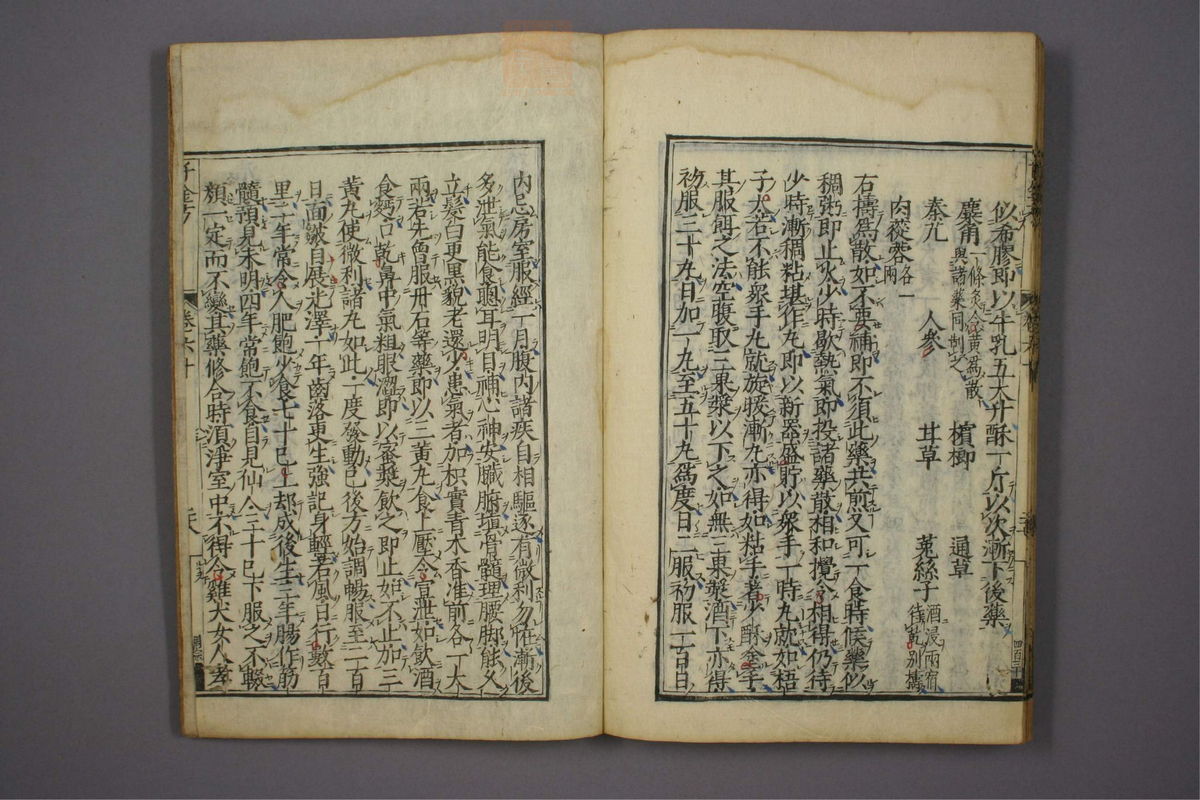 似希膠即以牛乳五大升酥一斤以次漸下後藥
麋角一條炙令黃爲散與諸藥同制之 檳榔 通草
秦艽 人參 甘草 菟絲子酒浸兩宿待乾別擣
肉蓯蓉各一兩
右擣爲散如不要補即不須此藥共煎又可一食時候藥似
稠粥即止火少時歇熱氣即投諸藥散相和攪令相得仍待
少時漸稠粘堪作丸即以新器盛貯以衆手一時丸就如梧
子大若不能衆手丸就旋暖漸丸亦得如粘手著少酥塗手
其服餌之法空腹取三果漿以下之如無三果漿酒下亦得
初服三十丸日加一丸至五十丸爲度日二服初服一百日
内忌房室服經一月腹内諸疾自相驅逐有微利勿怪漸後
多泄氣能食聰耳明目補心神安臟腑塡骨髓理腰脚能久
立髮白更黑貌老還少患氣者加枳實青木香准前各一大
兩若先曾服丹石等藥即以三黃丸食上壓令宣泄如飲酒
食麪口乾鼻中氣粗眼澀即以蜜漿飲之即止如不止加三
黃丸使微利諸丸如此一度發動已後方始調暢服至二百
日面皺自展光澤一年齒落更生強記身輕若風日行數百
里二年常令人肥飽少食七十已上却成後生三年腸作筋
髓預見未明四年常飽不食自見仙人三十已下服之不輟
顔一定而不變其藥修合時須淨室中不得令雞犬女人孝
卷六十
四百三十